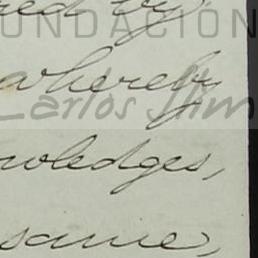 red by
FUNDACIÓN
whereby
Carlos Slim
wledges,
same,